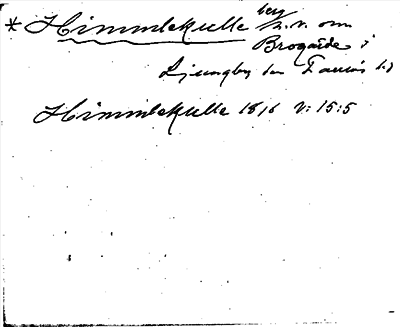 * Himmlekulle berg n.v. om
Brogärde i
Ljungby sn Faurås hd
Himmlekulle 1816 V: 15:5